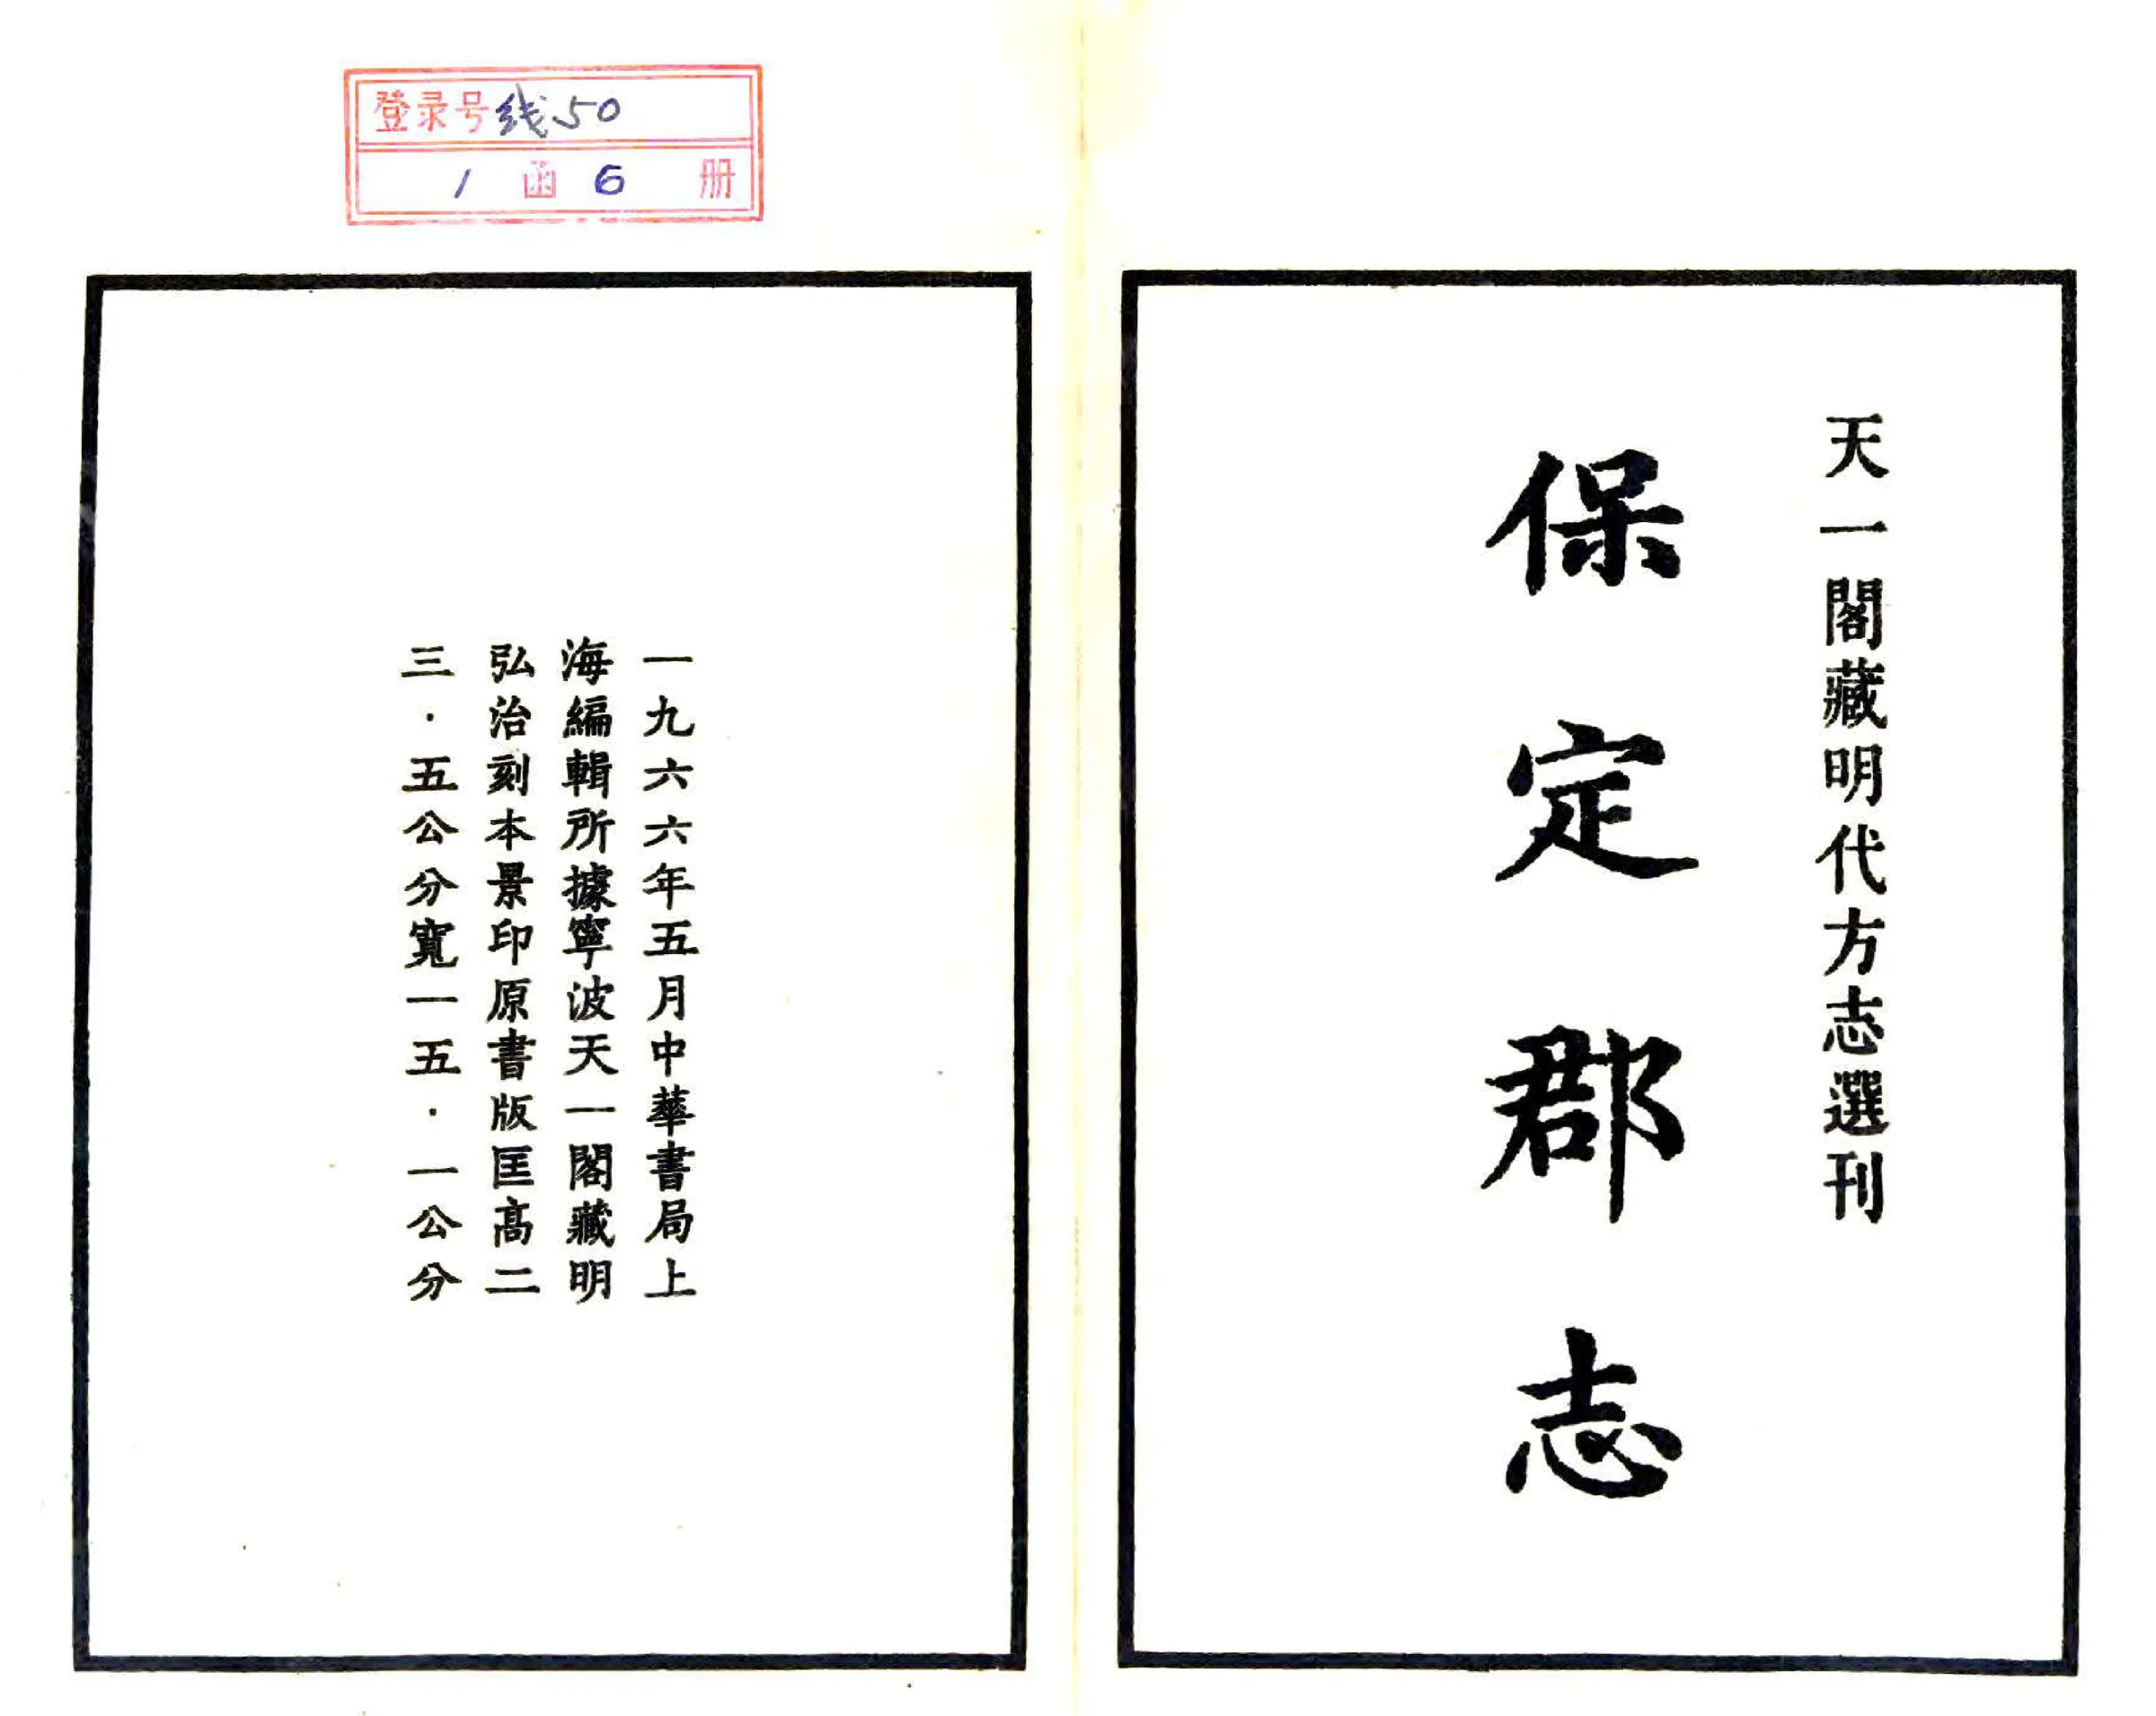 天一閣藏明代方志選刊
保定郡志
登录号线50
1函6册
一九六六年五月中華書局上
海編輯所據寧波天一閣藏明
弘治刻本景印原書版匡高二
三·五公分寬一五·一公分